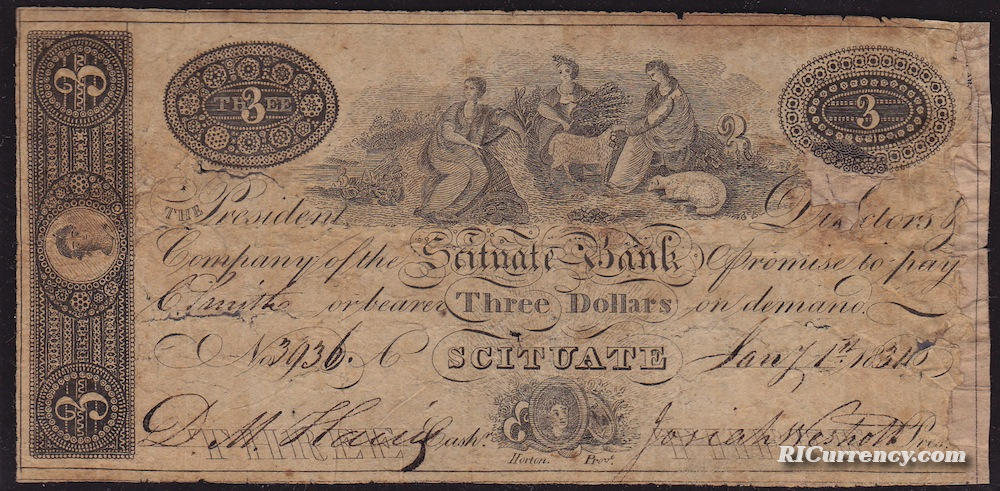 3
THREE
3
3
3
THE President Directors &
Company of the Scituate Bank Promise to pay
C Smith or bearer Three Dollars on demand.
No. 3936. C SCITUATE Jany 1st
Cashr. Josiah Westcott Pres.
THREE
Horton. Prov.
3
RICurrency.com